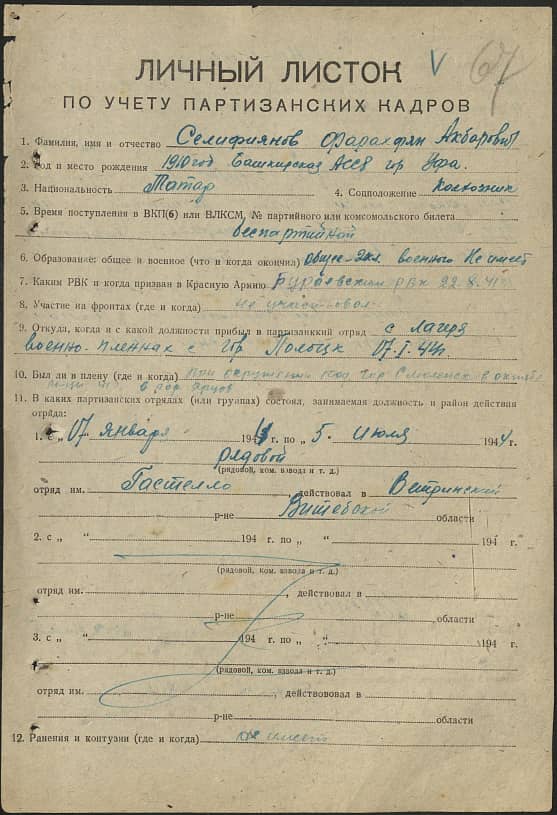 V 67
ЛИЧНЫЙ ЛИСТОК
ПО УЧЕТУ ПАРТИЗАНСКИХ КАДРОВ
1. Фамилия, имя и отчество Селифиянов Фарахфян Акбарович
2. Год и место рождения 1910 год Башкирская АССР гор Уфа.
3. Национальность Татар 4. Соцположение Колхозник
5. Время поступления в ВКП(б) или ВЛКСМ, № партийного или комсомольского билета
беспартийной
6. Образование: общее и военное (что и когда окончил) общее 2кл. военного Не имеет
7. Каким РВК и когда призван в Красную Армию Бураевским РВК 22.8.41
8. Участие на фронтах (где и когда) не участвовал
9. Откуда, когда и с какой должности прибыл в партизанкий отряд с лагеря
военно-пленнах с гор Полоцк 07.I.44г.
10. Был ли в плену (где и когда) при окружении под гор Смоленск в октябре
в гор
11. В каких партизанских отрядах (или группах) состоял, занимаемая должность и район действия
отряда:
1. с „07 января 194 г. по „ 5. июля 1944 г.
рядовой
(рядовой, ком. взвода и т. д.)
отряд им. Гастелло, действовал в Ветринский
р-не Витебской области
2. с „ “ 194 г. по „ “ 194 г.
(рядовой, ком. взвода и т. д.)
отряд им. , действовал в
р-не области
3. с „ “ 194 г. по „ “ 194 г.
(рядовой, ком. взвода и т. д.)
отряд им. , действововал в
р-не области
12. Ранения и контузии (где и когда) не имеет